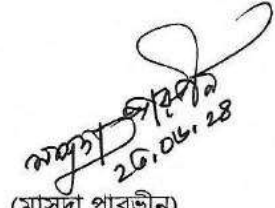 মাসুদা পারভীন
২৫.০৬.২৪
(মাসুদা পারভীন)